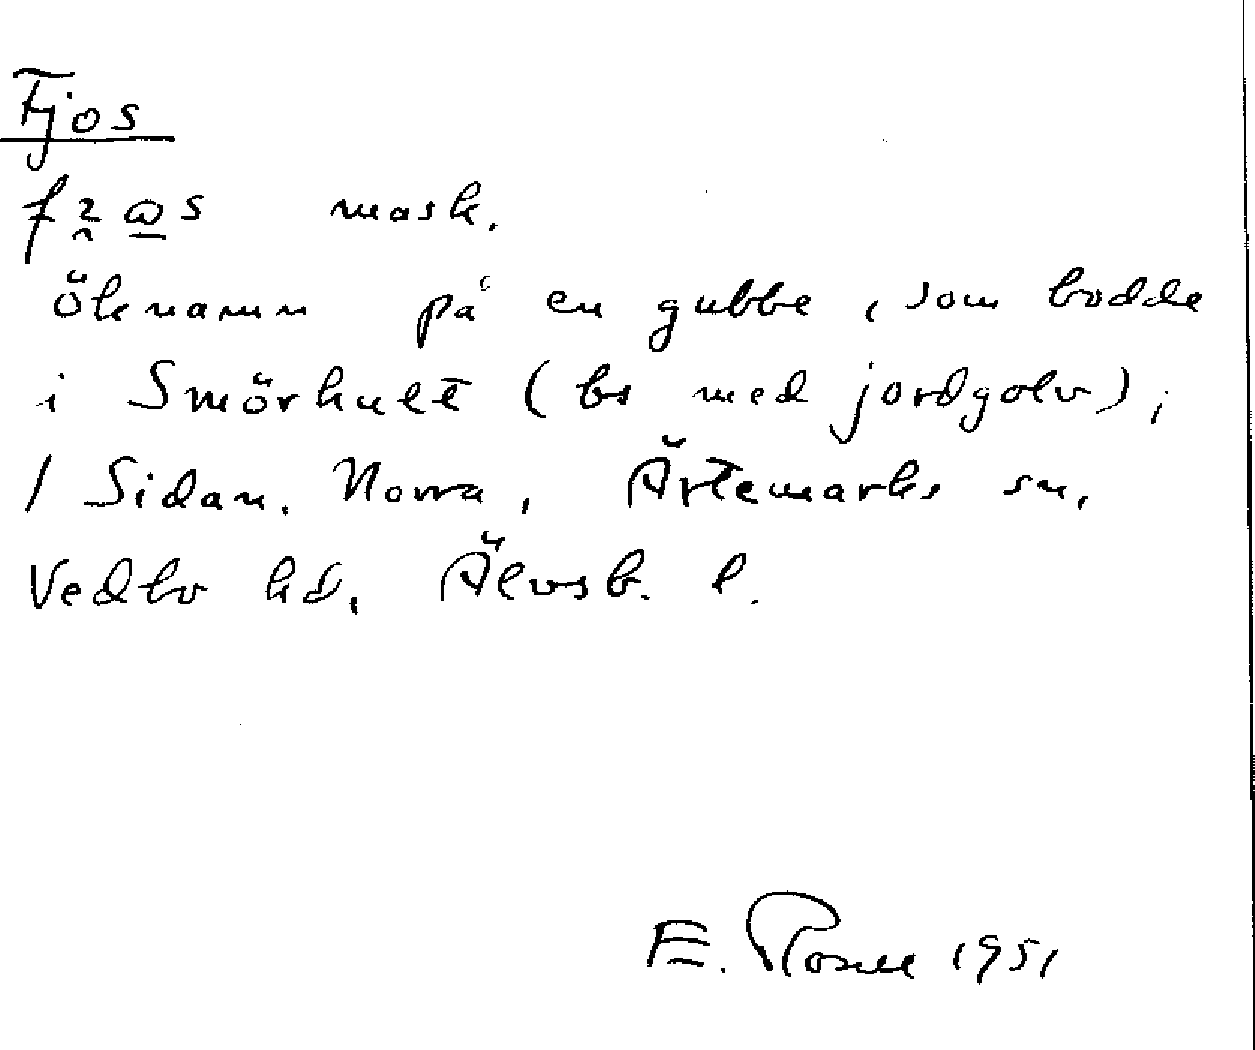 Fjos
mask.
Öknamn på en gubbe, som bodde
i Smörhult (bs med jordgolv),
1 Sidan. Norra, Ärtemarks sn,
Vedbo hd, Älvsb. l.
E. 1951